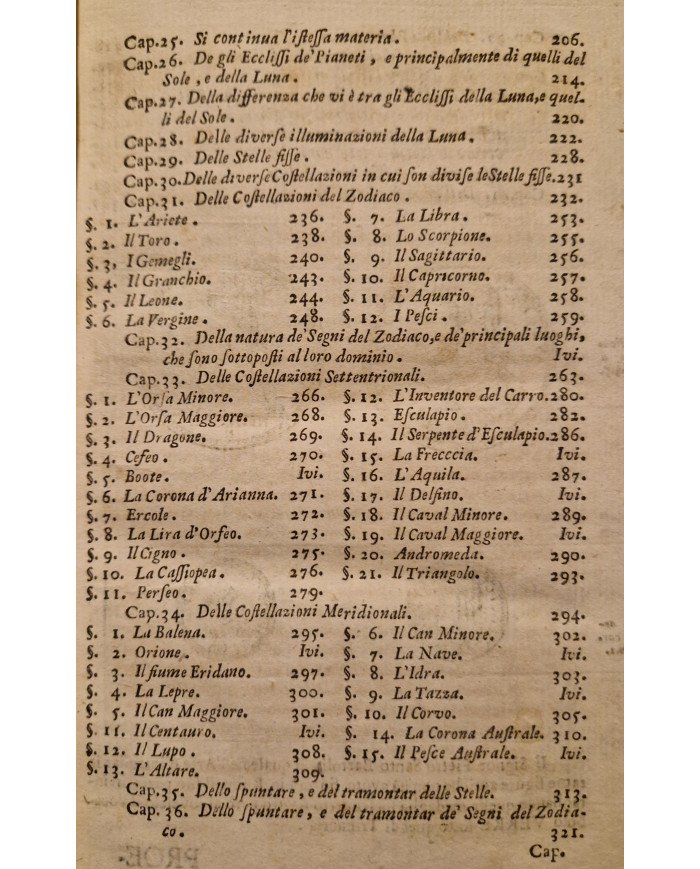 Cap.25. Si continua l'iſteſſa materia. 206.
Cap.26. De gli Eccliſſi de'Pianeti, e principalmente di quelli del
Sole, e della Luna. 214.
Cap.27. Della differenza che vi è tra gli Eccliſſi della Luna,e quel-
li del Sole. 220.
Cap.28. Delle diverſe illuminazioni della Luna. 222.
Cap.29. Delle Stelle fiſſe. 228.
Cap.30.Delle diverſe Coſtellazioni in cui ſon diviſe le Stelle fiſſe.231
Cap.31. Delle Coſtellazioni del Zodiaco. 232.
§. 1. L'Ariete. 236. §. 7. La Libra. 253.
§. 2. Il Toro. 238. §. 8. Lo Scorpione. 255.
§. 3, I Gemegli. 240. §. 9. Il Sagittario. 256.
§. 4. Il Granchio. 243. §. 10. Il Capricorno. 257.
§. 5. Il Leone. 244. §. 11. L'Aquario. 258.
§. 6. La Vergine. 248. §. 12. I Peſci. 259.
Cap.32. Della natura de'Segni del Zodiaco,e de'principali luoghi,
che ſono ſottopoſti al loro dominio. Ivi.
Cap.33. Delle Coſtellazioni Settentrionali. 263.
§. 1. L'Orſa Minore. 266. §. 12. L'Inventore del Carro.280.
§. 2. L'Orſa Maggiore. 268. §. 13. Eſculapio. 282.
§. 3. Il Dragone. 269. §. 14. Il Serpente d'Eſculapio.286.
§. 4. Cefeo. 270. §. 15. La Frecccia. Ivi.
§. 5. Boote. Ivi. §. 16. L'Aquila. 287.
§. 6. La Corona d'Arianna. 271. §. 17. Il Delfino. Ivi.
§. 7. Ercole. 272. §. 18. Il Caval Minore. 289.
§. 8. La Lira d'Orfeo. 273. §. 19. Il Caval Maggiore. Ivi.
§. 9. Il Cigno. 275. §. 20. Andromeda. 290.
§. 10. La Caſſiopea. 276. §. 21. Il Triangolo. 293.
§. 11. Perſeo. 279.
Cap.34. Delle Coſtellazioni Meridionali. 294.
§. 1. La Balena. 295. §. 6. Il Can Minore. 302.
§. 2. Orione. Ivi. §. 7. La Nave. Ivi.
§. 3. Il fiume Eridano. 297. §. 8. L'Idra. 303.
§. 4. La Lepre. 300. §. 9. La Tazza. Ivi.
§. 5. Il Can Maggiore. 301. §. 10. Il Corvo. 305.
§. 11. Il Centauro. Ivi. §. 14. La Corona Auſtrale. 310.
§. 12. Il Lupo. 308. §. 15. Il Peſce Auſtrale. Ivi.
§. 13. L'Altare. 309.
Cap.35. Dello ſpuntare, e del tramontar delle Stelle. 313.
Cap.36. Dello ſpuntare, e del tramontar de' Segni del Zodia-
co. 321.
Cap.